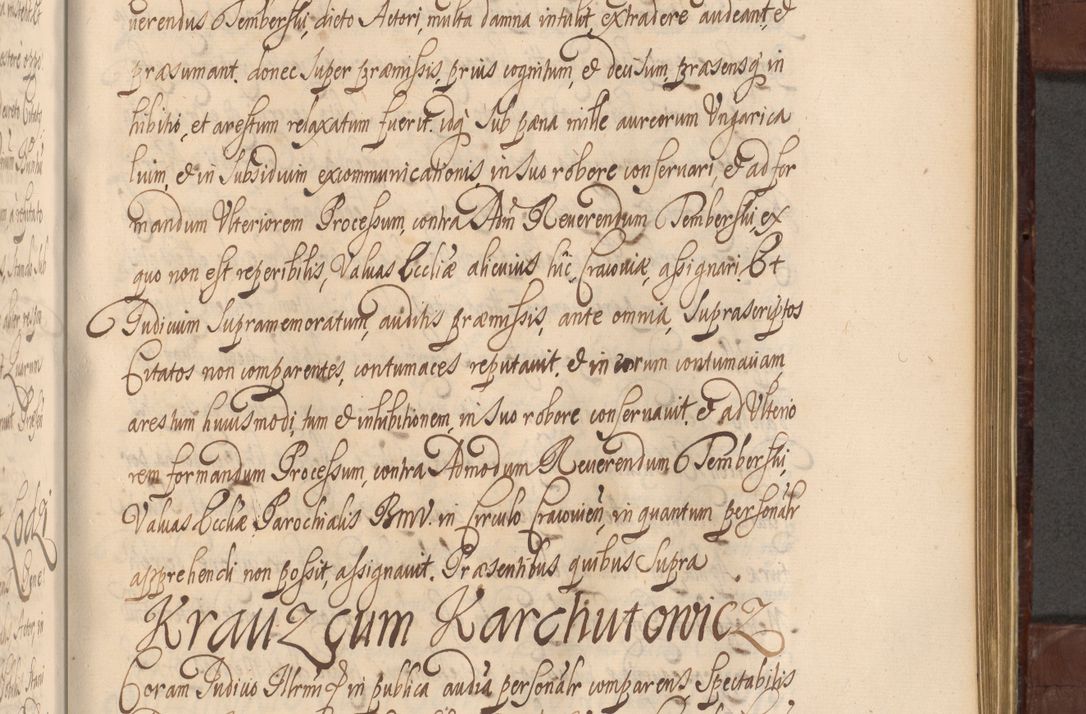 uerendus Temberski, dicto Actori, multa damna intulit, extradere audeant, et
præsumant. donec super præmissis, prius cognitum, et decisum, præsensq in
hibitio, et arestum relaxatum fuerit. idq sub pæna mille aureorum Vngarica
lium, et in subsidium excommunicationis in suo robore conseruari, et ad for
mandum Vlteriorem Processum, contra Adm Reuerendum Temberski, ex
quo non est reperibilis, Valuas Eccliæ alicuius hic Cracoviæ, assignari. Et
Iudicium supramemoratum, auditis præmissis, ante omnia, suprascriptos
Citatos non comparentes, contumaces reputauit, et in eorum contumaciam
arestum huiusmodi, tum et inhibitionem, in suo robore conseruauit. et ad Vlterio
rem formandum Processum, contra Admodum Reuerendum Temberski,
Valuas Eccliæ Parochialis BMV. in Circulo Cracovien, in quantum personalr
apprehendi non possit, assignauit. Præsentibus quibus supra
Krauz cum Karchutowicz
Coram Iudicio Illrmi in publica audia personalr comparens Spectabilis